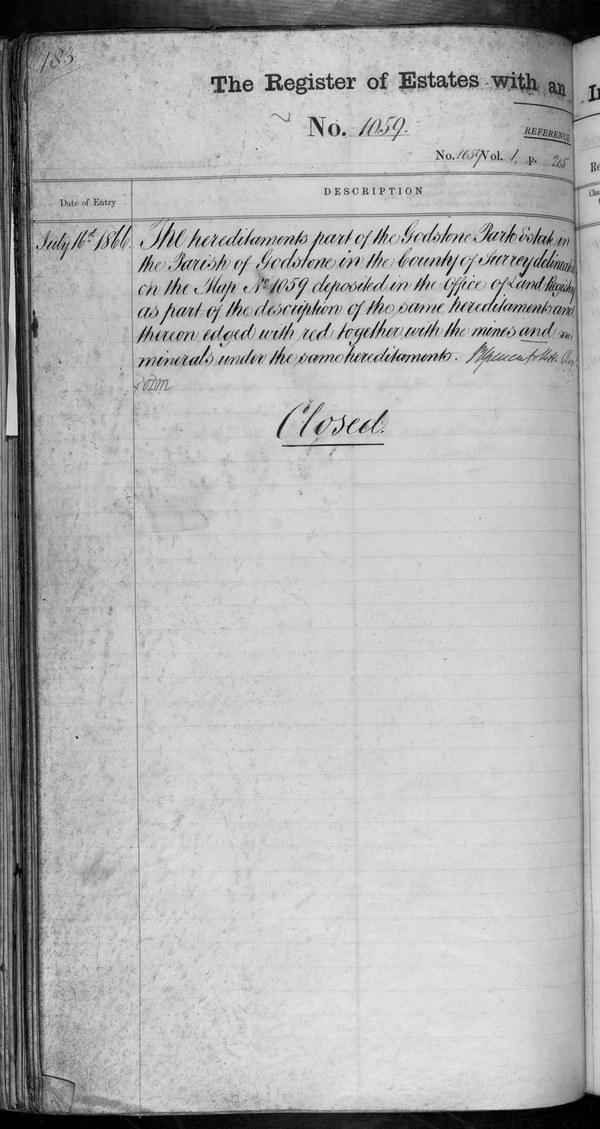 183
The Register of Estates with an
No. 1059.
REFERENCE
No. 1059 Vol. 1, p. 205
Date of Entry
DESCRIPTION
July 16th 1866.
The hereditaments part of the Godstone Park Estate in
the Parish of Godstone in the County of Surrey delineated
on the Map No 1059 deposited in the Office of Land Registry
as part of the description of the same hereditaments and
thereon edged with red together with the mines and
minerals under the same hereditaments.
Closed.
In
Re